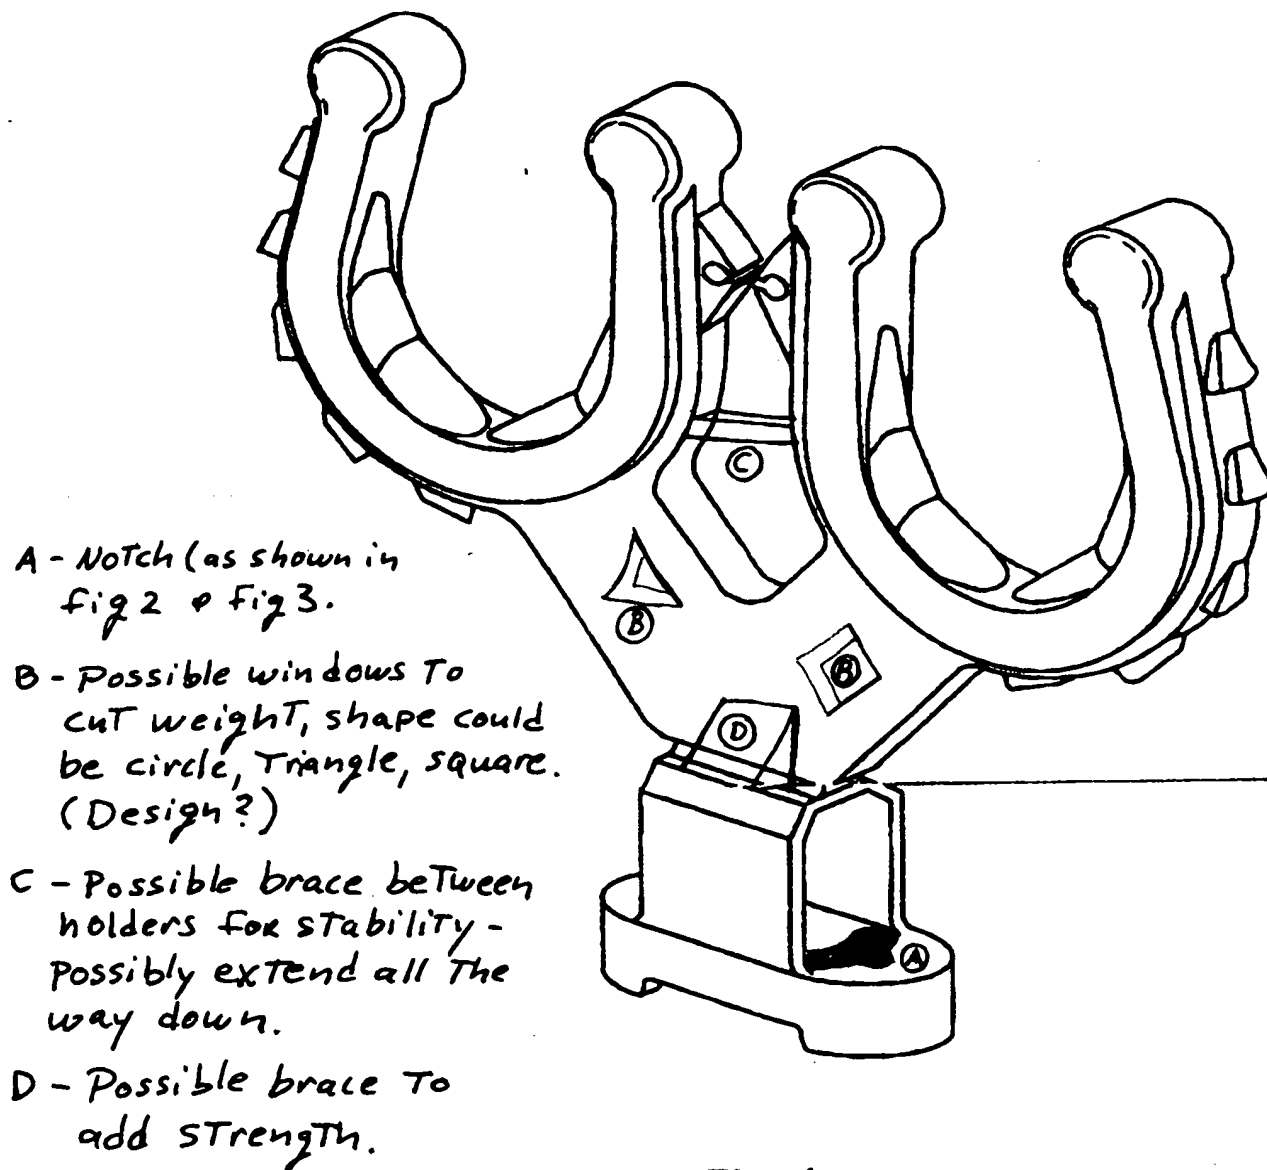 A - Notch (as shown in
fig 2 & fig 3.
B - Possible windows To
cut weight, shape could
be circle, Triangle, square.
(Design?)
C - Possible brace between
holders for stability -
possibly extend all The
way down.
D - Possible brace To
add strength.
C
B
B
D
A